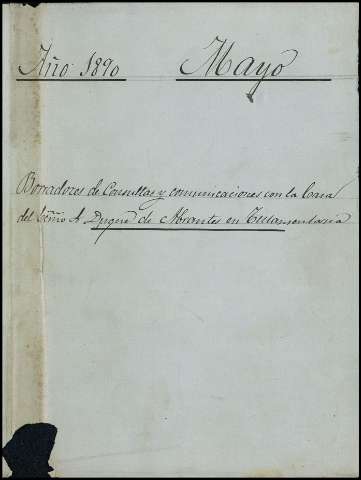 Año 1890 Mayo
Borradores de Consultas y comunicaciones con la Casa
del Duque de Abrantes en Testamentaria